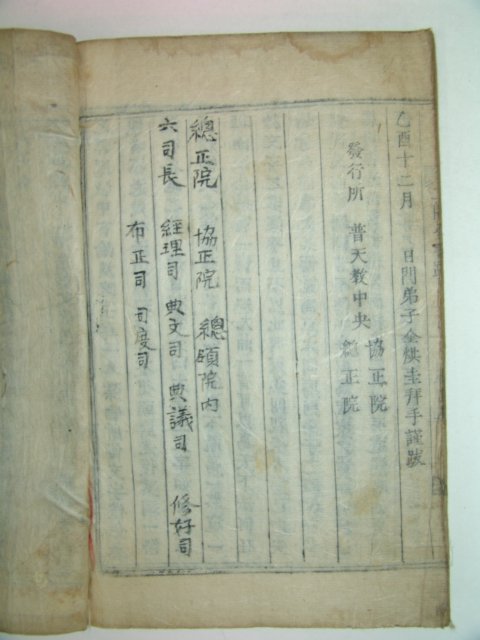 乙酉十二月 日門弟子金烘圭拜手謹跋
發行所 普天教中央 協正院
總正院
總正院 協正院 總領院內
六司長 經理司 典文司 典議司 修好司
布正司 司度司